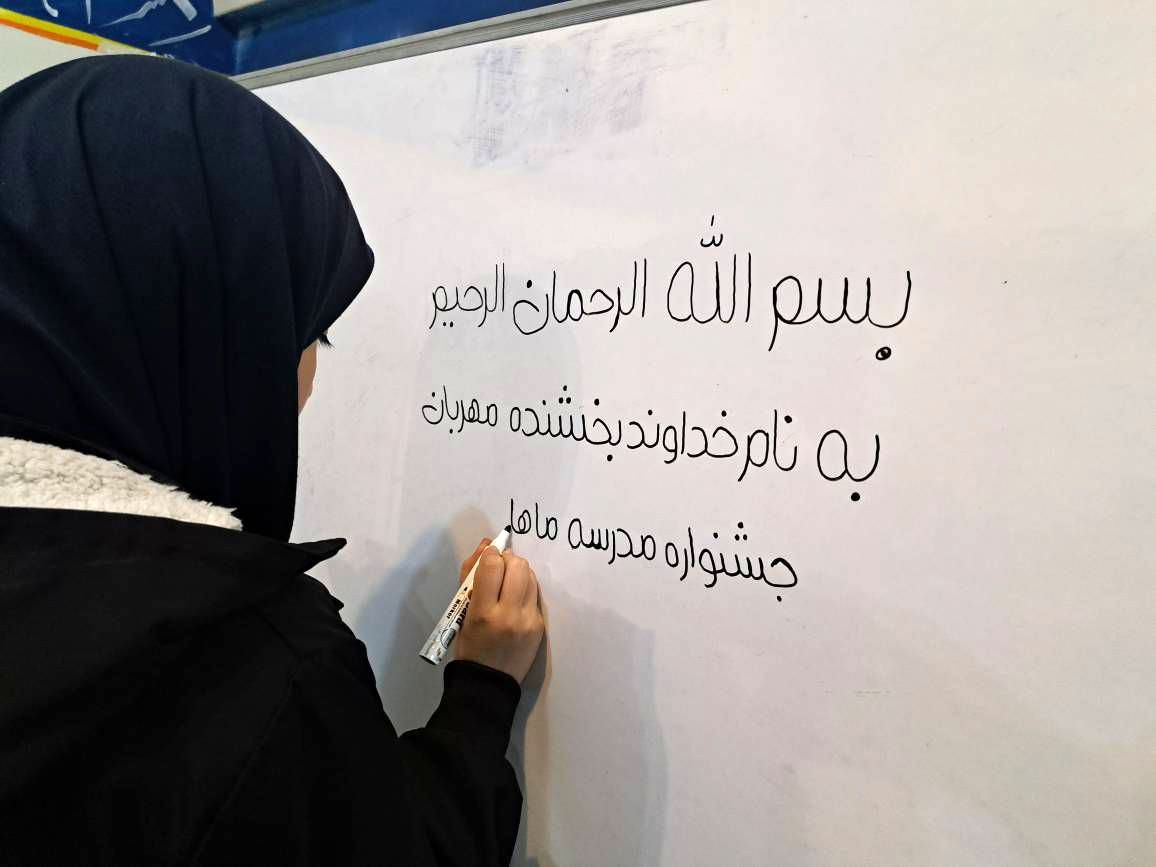 بسم الله الرحمان الرحیم
به نام خداوند بخنشنده مهربان
جشنواره مدرسه ماها